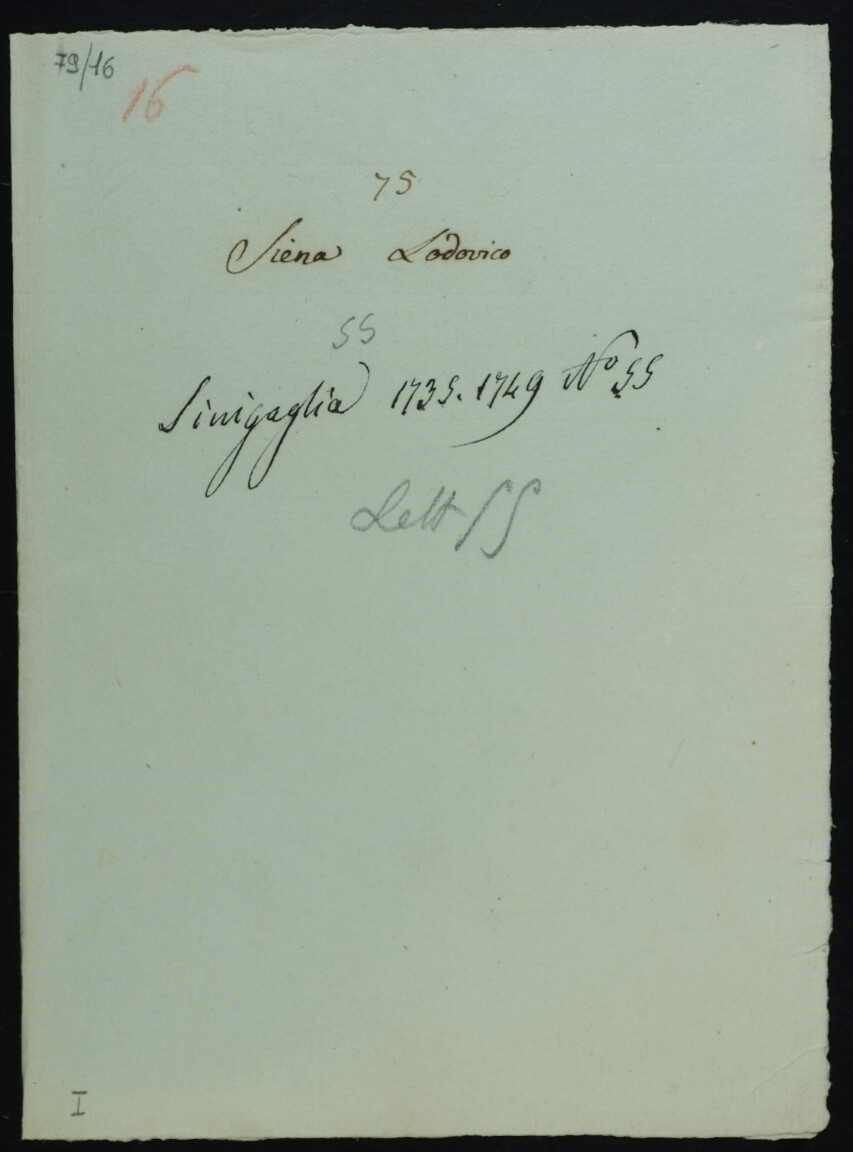 79/16
16
75
Siena Lodovico
55
Sinigaglia 1735. 1749 No 55
Lett 55
I